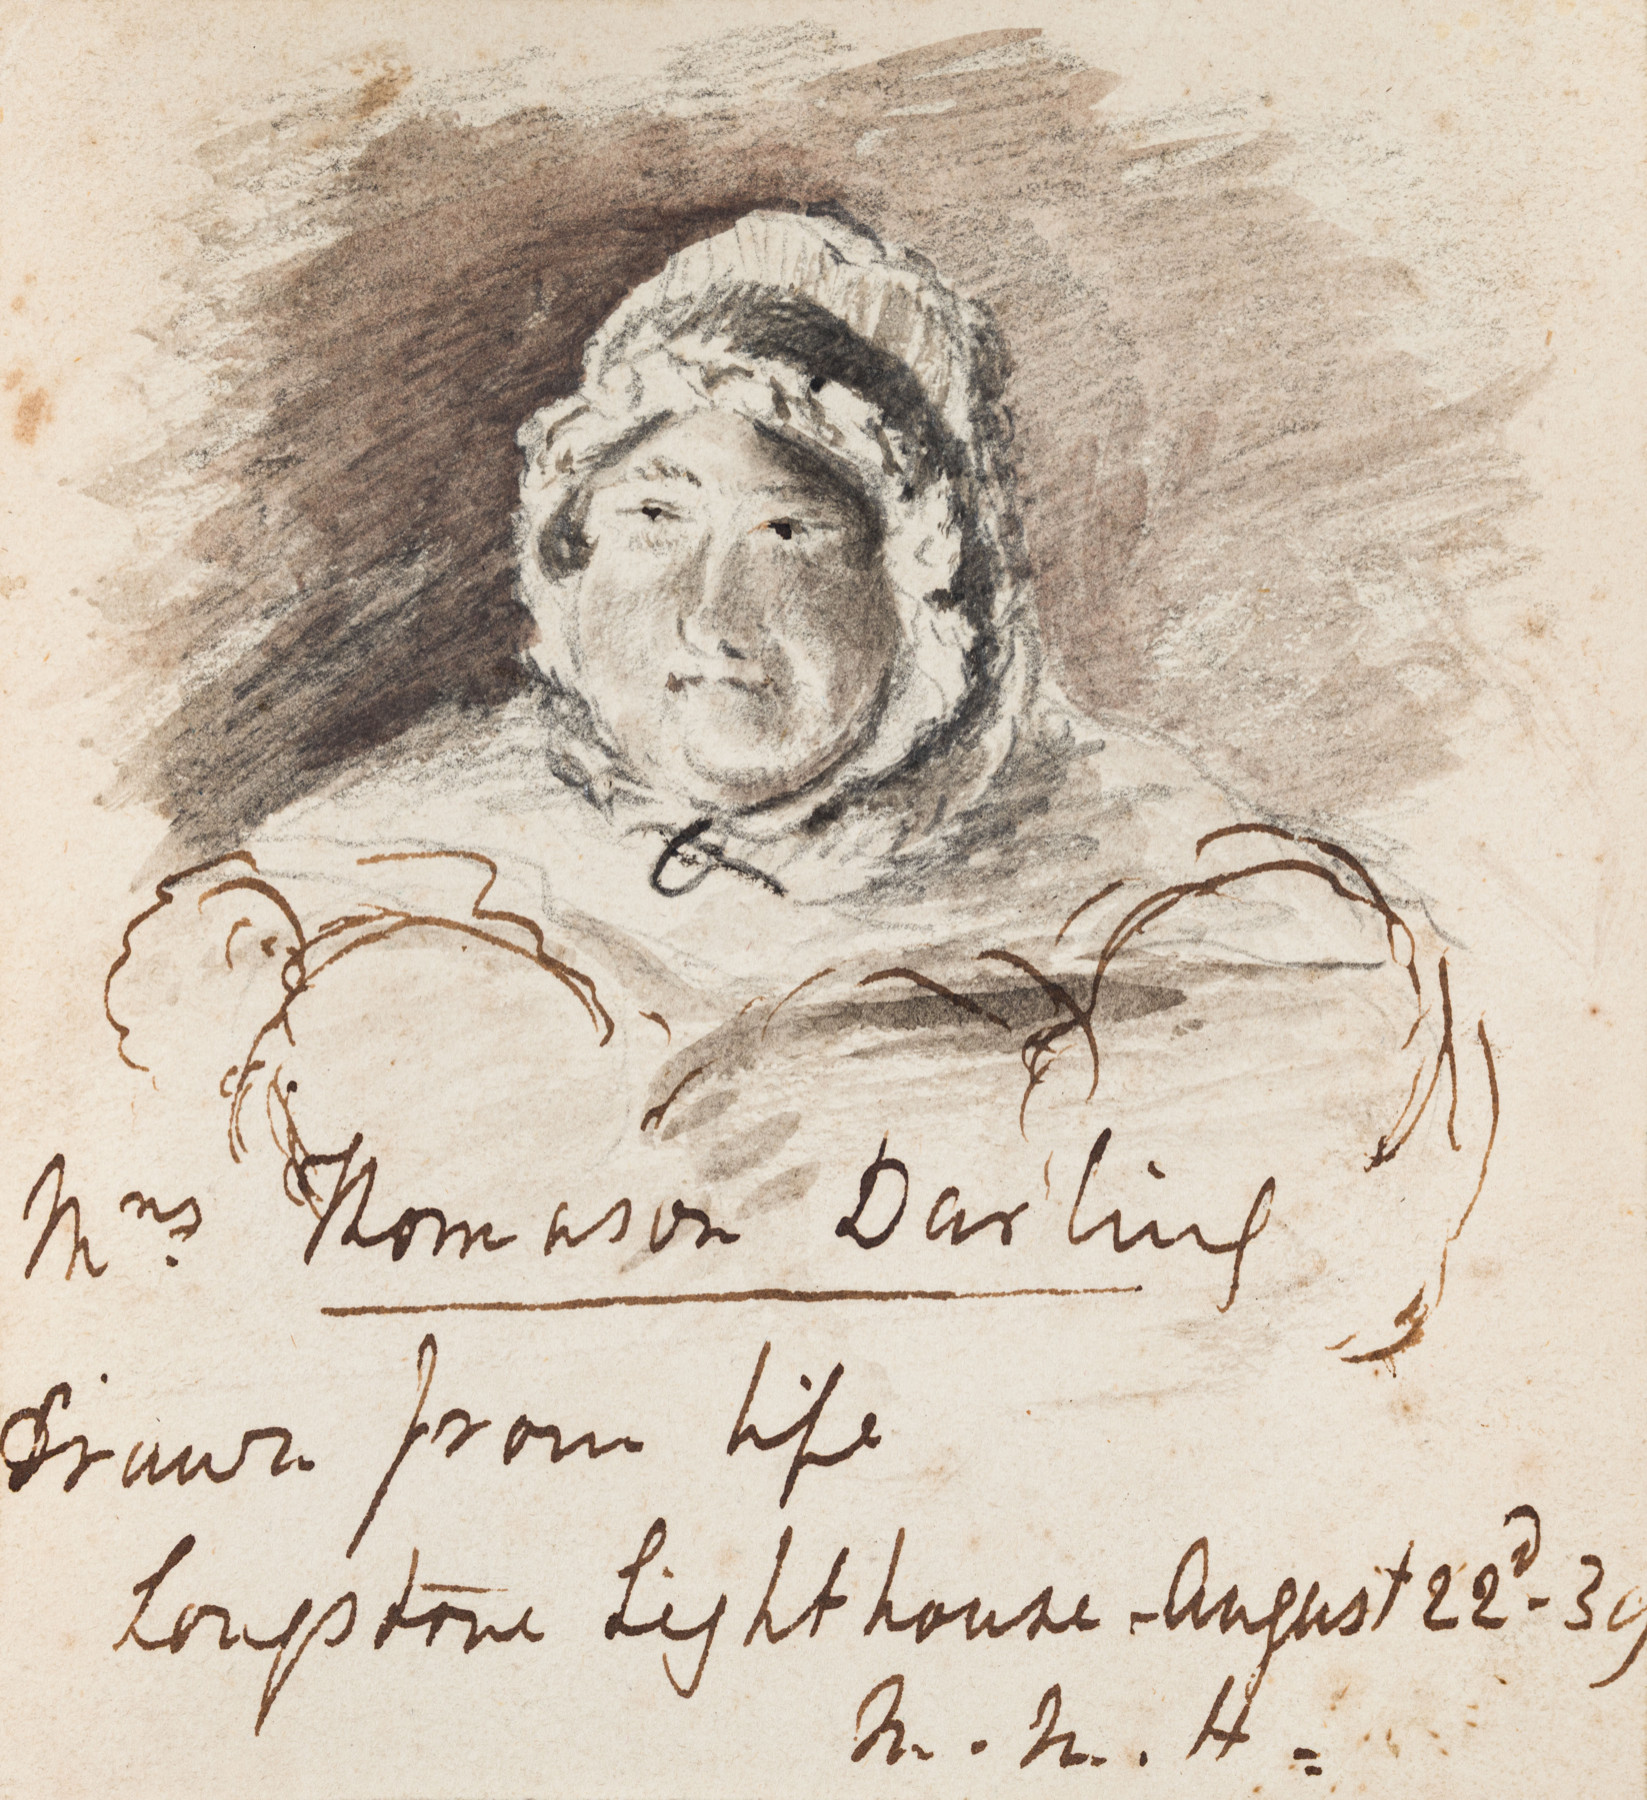 Mrs Thomason Darling
Drawn from life
Longstone Lighthouse - August 22d - 39